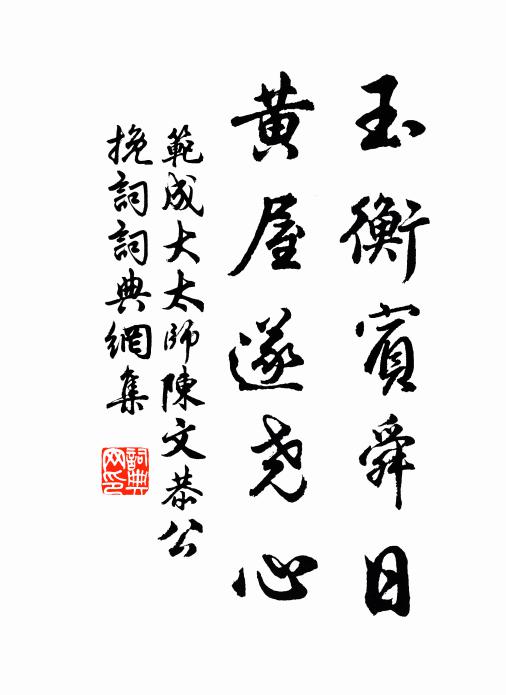 玉衡賓舜日
黄屋遂尧心
範成大太師陳文恭公
挽詞詞典網集
詞典网印